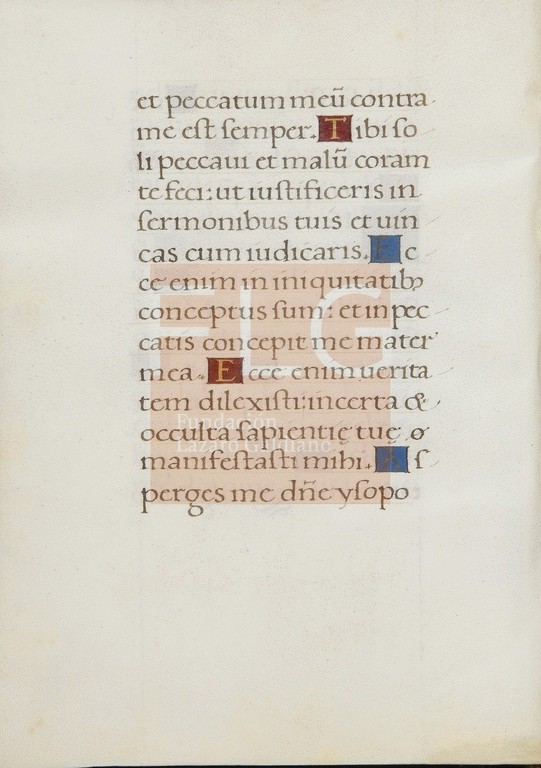 et peccatum meū contra
me est semper. Tibi so
li peccaui et malū coram
te feci: ut iustificeris in
sermonibus tuis et uin
cas cum iudicaris. Ec
ce enim in iniquitatibꝫ
conceptus sum: et in pec
catis concepit me mater
mea. Ecce enim uerita
tem dilexisti: incerta &
occulta sapientię tuę
manifestasti mihi. As
perges me dn̄e ysopo
FLG
Fundación
Lázaro Galdiano